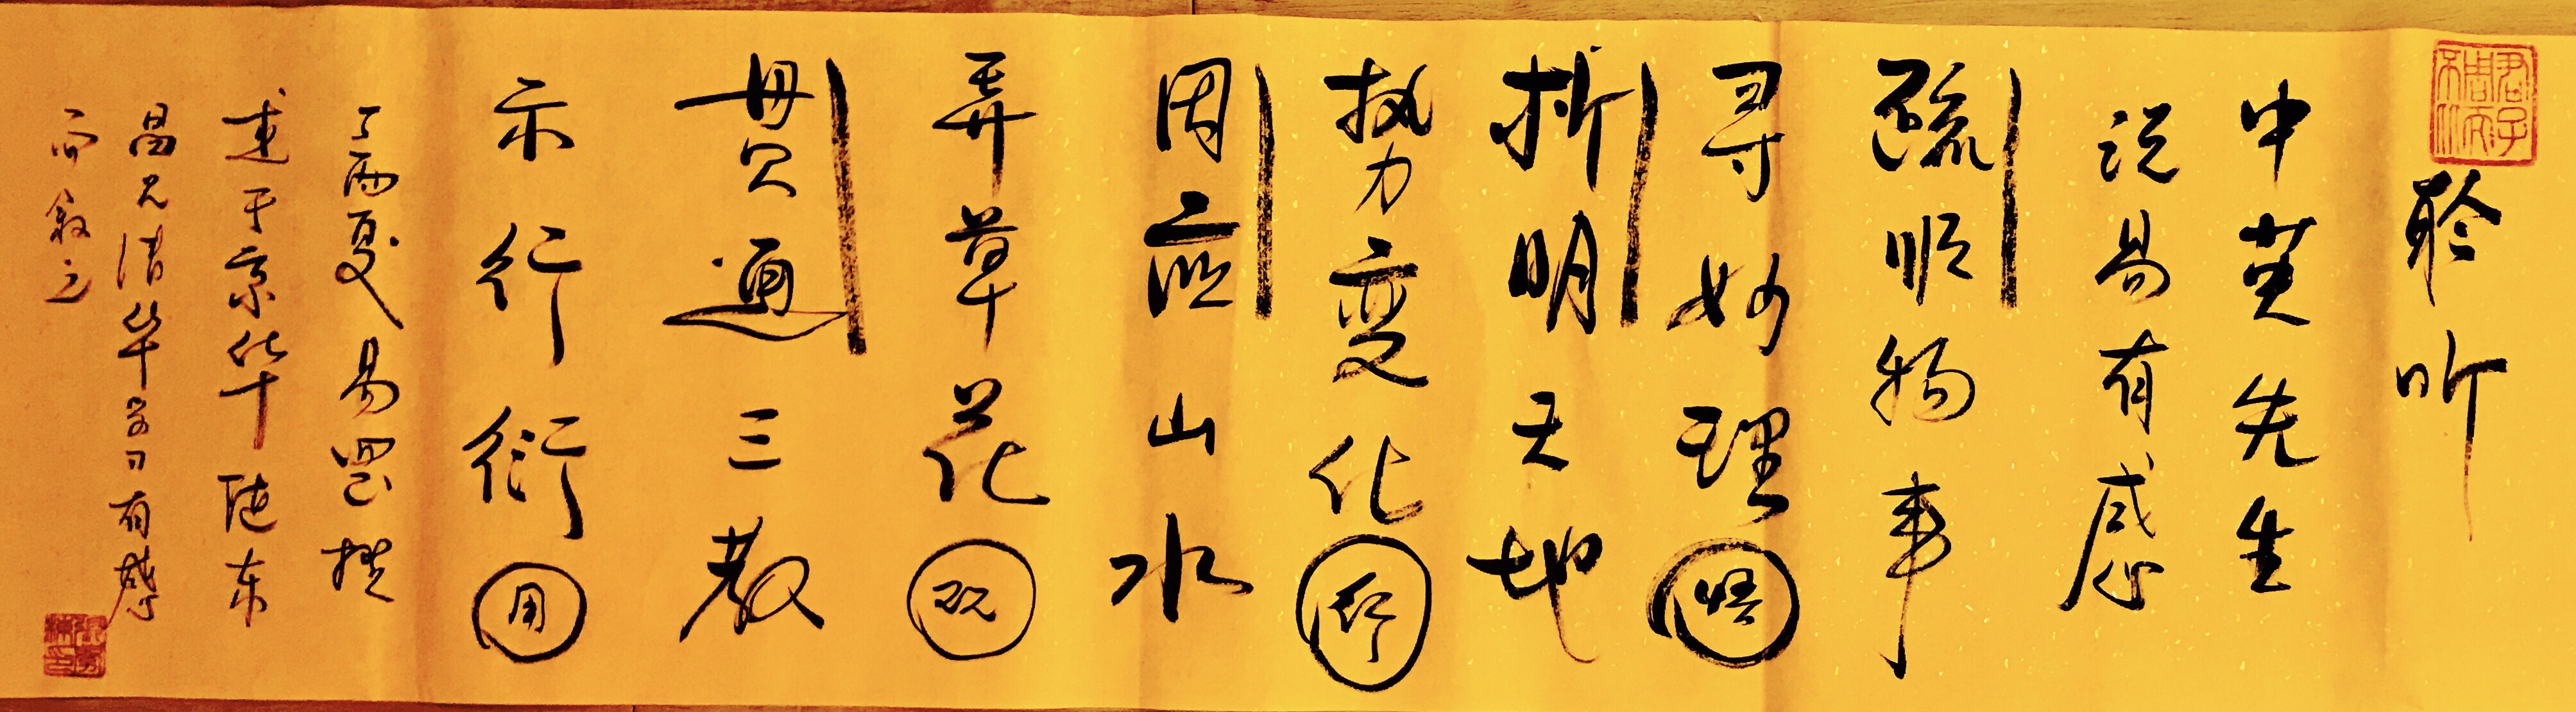 聆听
中英先生
说易有感
疏顺物事
寻妙理悟
析明天地
势变化
因应山水
弄草花玩
贯通三教
示行衍用
丁酉夏易罡撰
于京华东
昌兄清华学习有感
而叙之